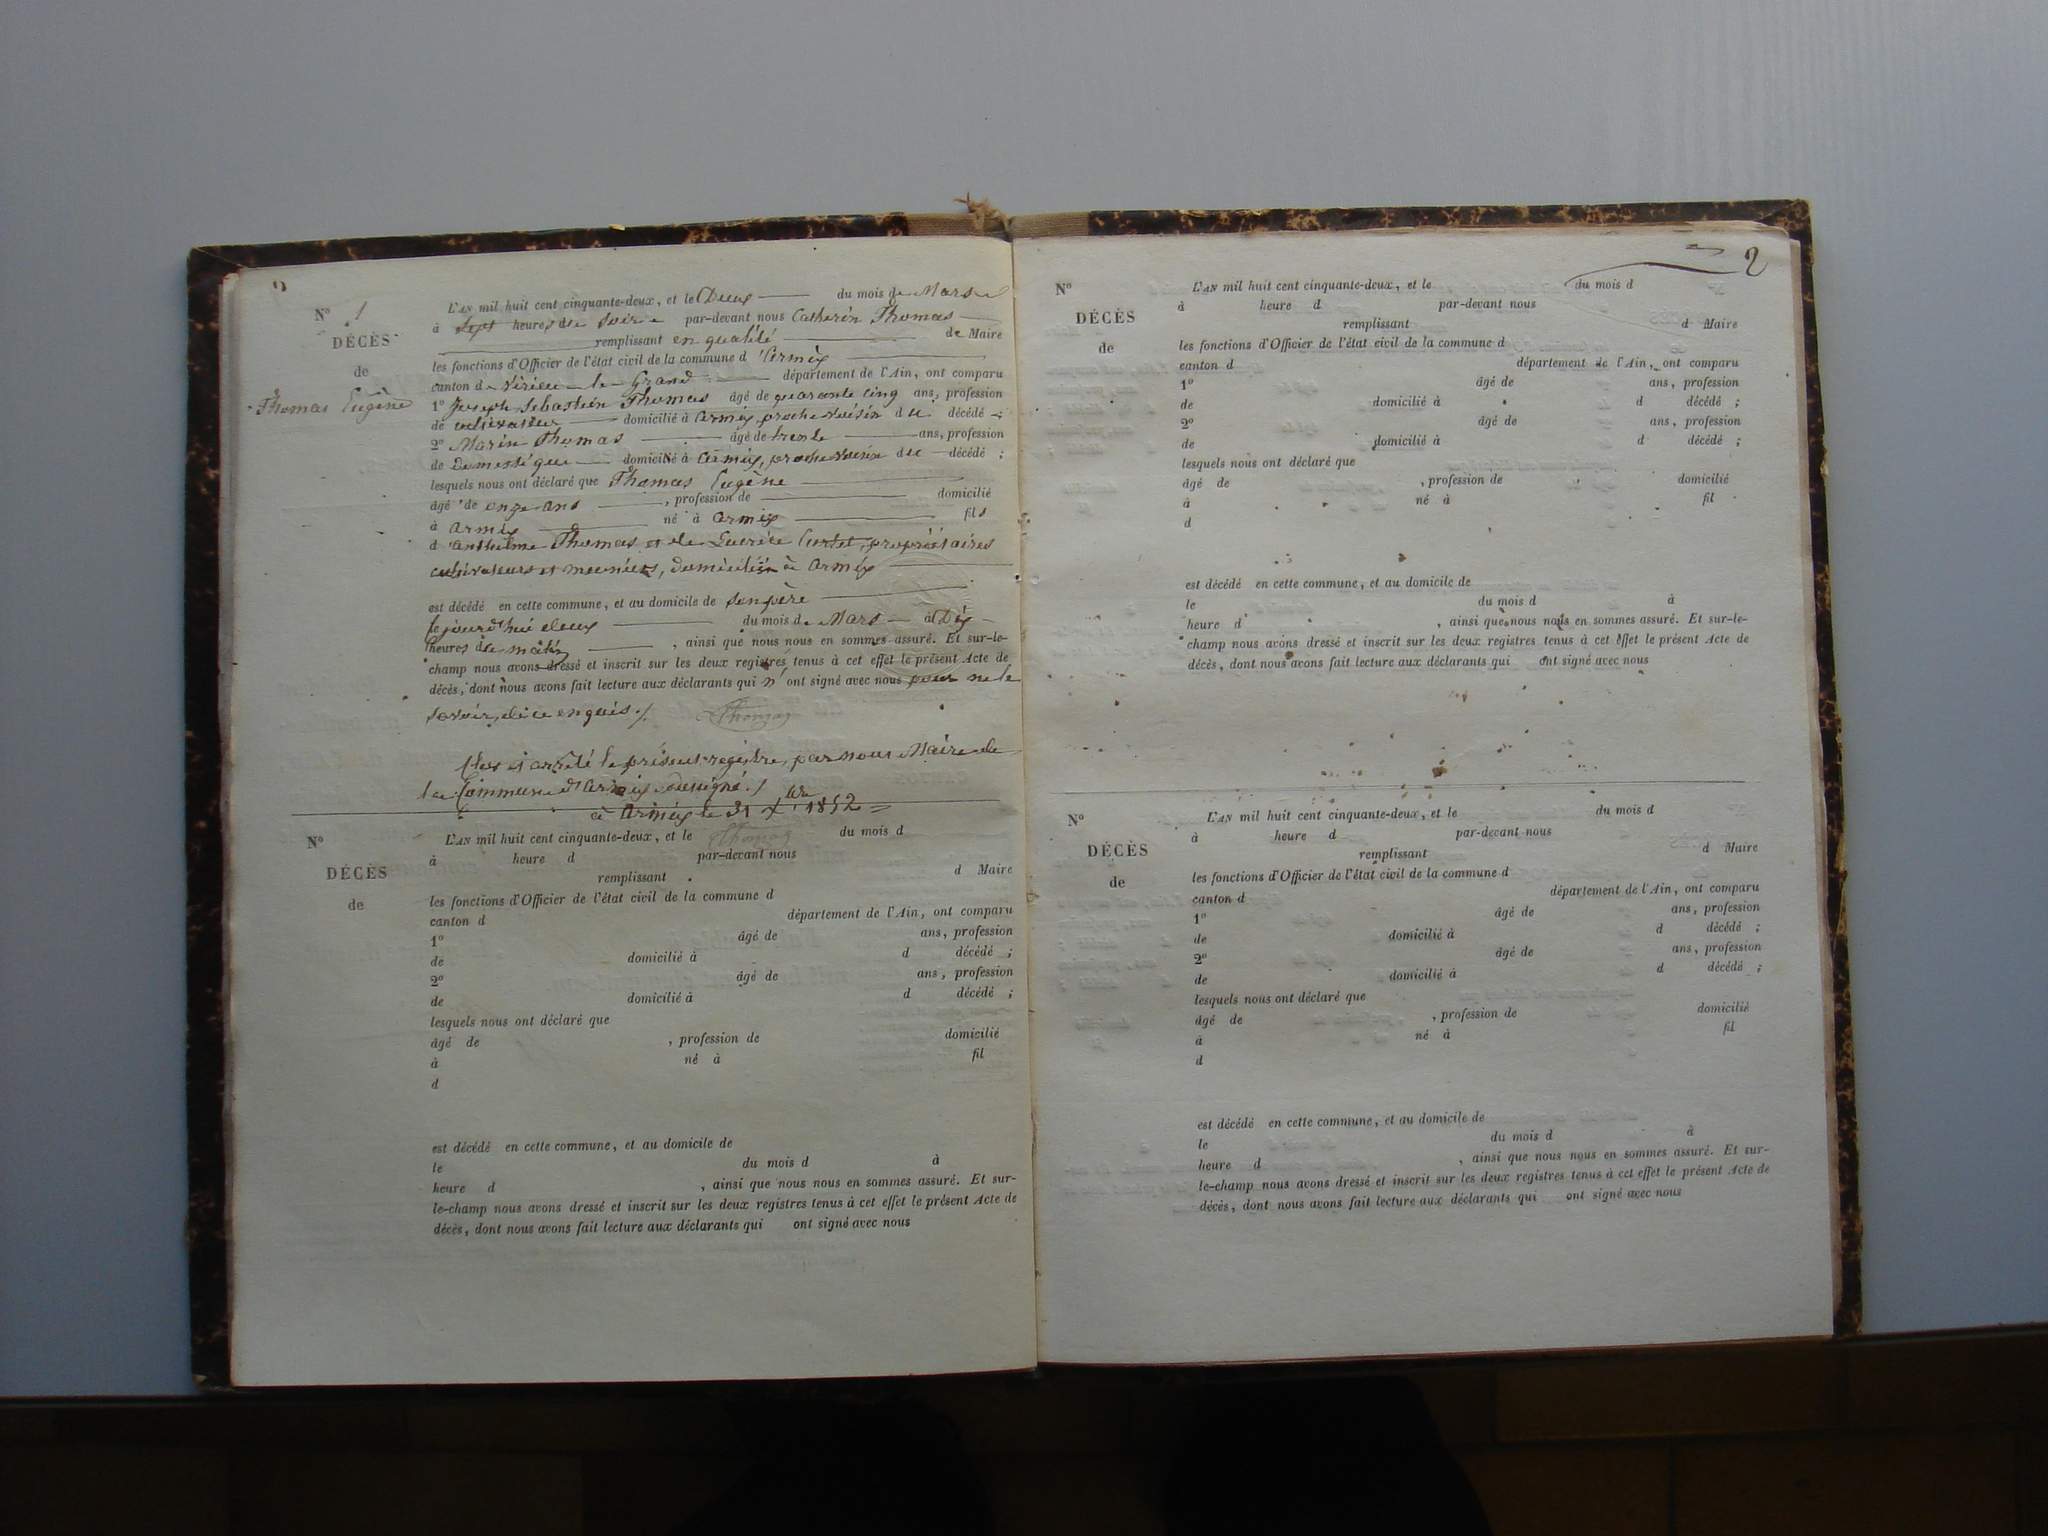 N° 1
DÉCÈS
de
Thomas Eugène
L'AN mil huit cent cinquante-deux, et le Deux du mois de Mars
à Sept heures du soir par-devant nous Catherin Thomas
remplissant en qualité de Maire
les fonctions d'Officier de l'état civil de la commune d'Armix
canton de Virieu-le-Grand département de l'Ain, ont comparu
1° Joseph Sebastien Thomas âgé de quarante cinq ans, profession
de cultivateur domicilié à Armix, proche voisin du décédé ;
2° Marin Thomas âgé de trente ans, profession
de Domestique domicilié à Armix, proche voisin du décédé ;
lesquels nous ont déclaré que Thomas Eugène
âgé de onze ans , profession de domicilié
à Armix né à Armix fils
d'anthelme Thomas et de Lucrèce Curtet, propriétaires
cultivateurs et meuniers, domiciliés à Armix
est décédé en cette commune, et au domicile de son père
le jourd'hui deux du mois de Mars à Dix
heures du matin , ainsi que nous nous en sommes assuré. Et sur-le-
champ nous avons dressé et inscrit sur les deux registres tenus à cet effet le présent Acte de
décès, dont nous avons fait lecture aux déclarants qui n'ont signé avec nous pour ne le
savoir, de ce enquis ./. Thomas
Clos et arrêté le présent registre, par nous Maire de
la Commune d'Armix soussigné ./.
à Armix le 31 Xbre 1852
Thomas
N°
DÉCÈS
de
L'AN mil huit cent cinquante-deux, et le du mois d
à heure d par-devant nous
remplissant d Maire
les fonctions d'Officier de l'état civil de la commune d
canton d département de l'Ain, ont comparu
1° âgé de ans, profession
de domicilié à d décédé ;
2° âgé de ans, profession
de domicilié à d décédé ;
lesquels nous ont déclaré que
âgé de , profession de domicilié
à né à fil
d
est décédé en cette commune, et au domicile de
le du mois d à
heure d , ainsi que nous nous en sommes assuré. Et sur-
le-champ nous avons dressé et inscrit sur les deux registres tenus à cet effet le présent Acte de
décès, dont nous avons fait lecture aux déclarants qui ont signé avec nous
2
N°
DÉCÈS
de
L'AN mil huit cent cinquante-deux, et le du mois d
à heure d par-devant nous
remplissant d Maire
les fonctions d'Officier de l'état civil de la commune d
canton d département de l'Ain, ont comparu
1° âgé de ans, profession
de domicilié à d décédé ;
2° âgé de ans, profession
de domicilié à d décédé ;
lesquels nous ont déclaré que
âgé de , profession de domicilié
à né à fil
d
est décédé en cette commune, et au domicile de
le du mois d à
heure d , ainsi que nous nous en sommes assuré. Et sur-le-
champ nous avons dressé et inscrit sur les deux registres tenus à cet effet le présent Acte de
décès, dont nous avons fait lecture aux déclarants qui ont signé avec nous
N°
DÉCÈS
de
L'AN mil huit cent cinquante-deux, et le du mois d
à heure d par-devant nous
remplissant d Maire
les fonctions d'Officier de l'état civil de la commune d
canton d département de l'Ain, ont comparu
1° âgé de ans, profession
de domicilié à d décédé ;
2° âgé de ans, profession
de domicilié à d décédé ;
lesquels nous ont déclaré que
âgé de , profession de domicilié
à né à fil
d
est décédé en cette commune, et au domicile de
le du mois d à
heure d , ainsi que nous nous en sommes assuré. Et sur-
le-champ nous avons dressé et inscrit sur les deux registres tenus à cet effet le présent Acte de
décès, dont nous avons fait lecture aux déclarants qui ont signé avec nous